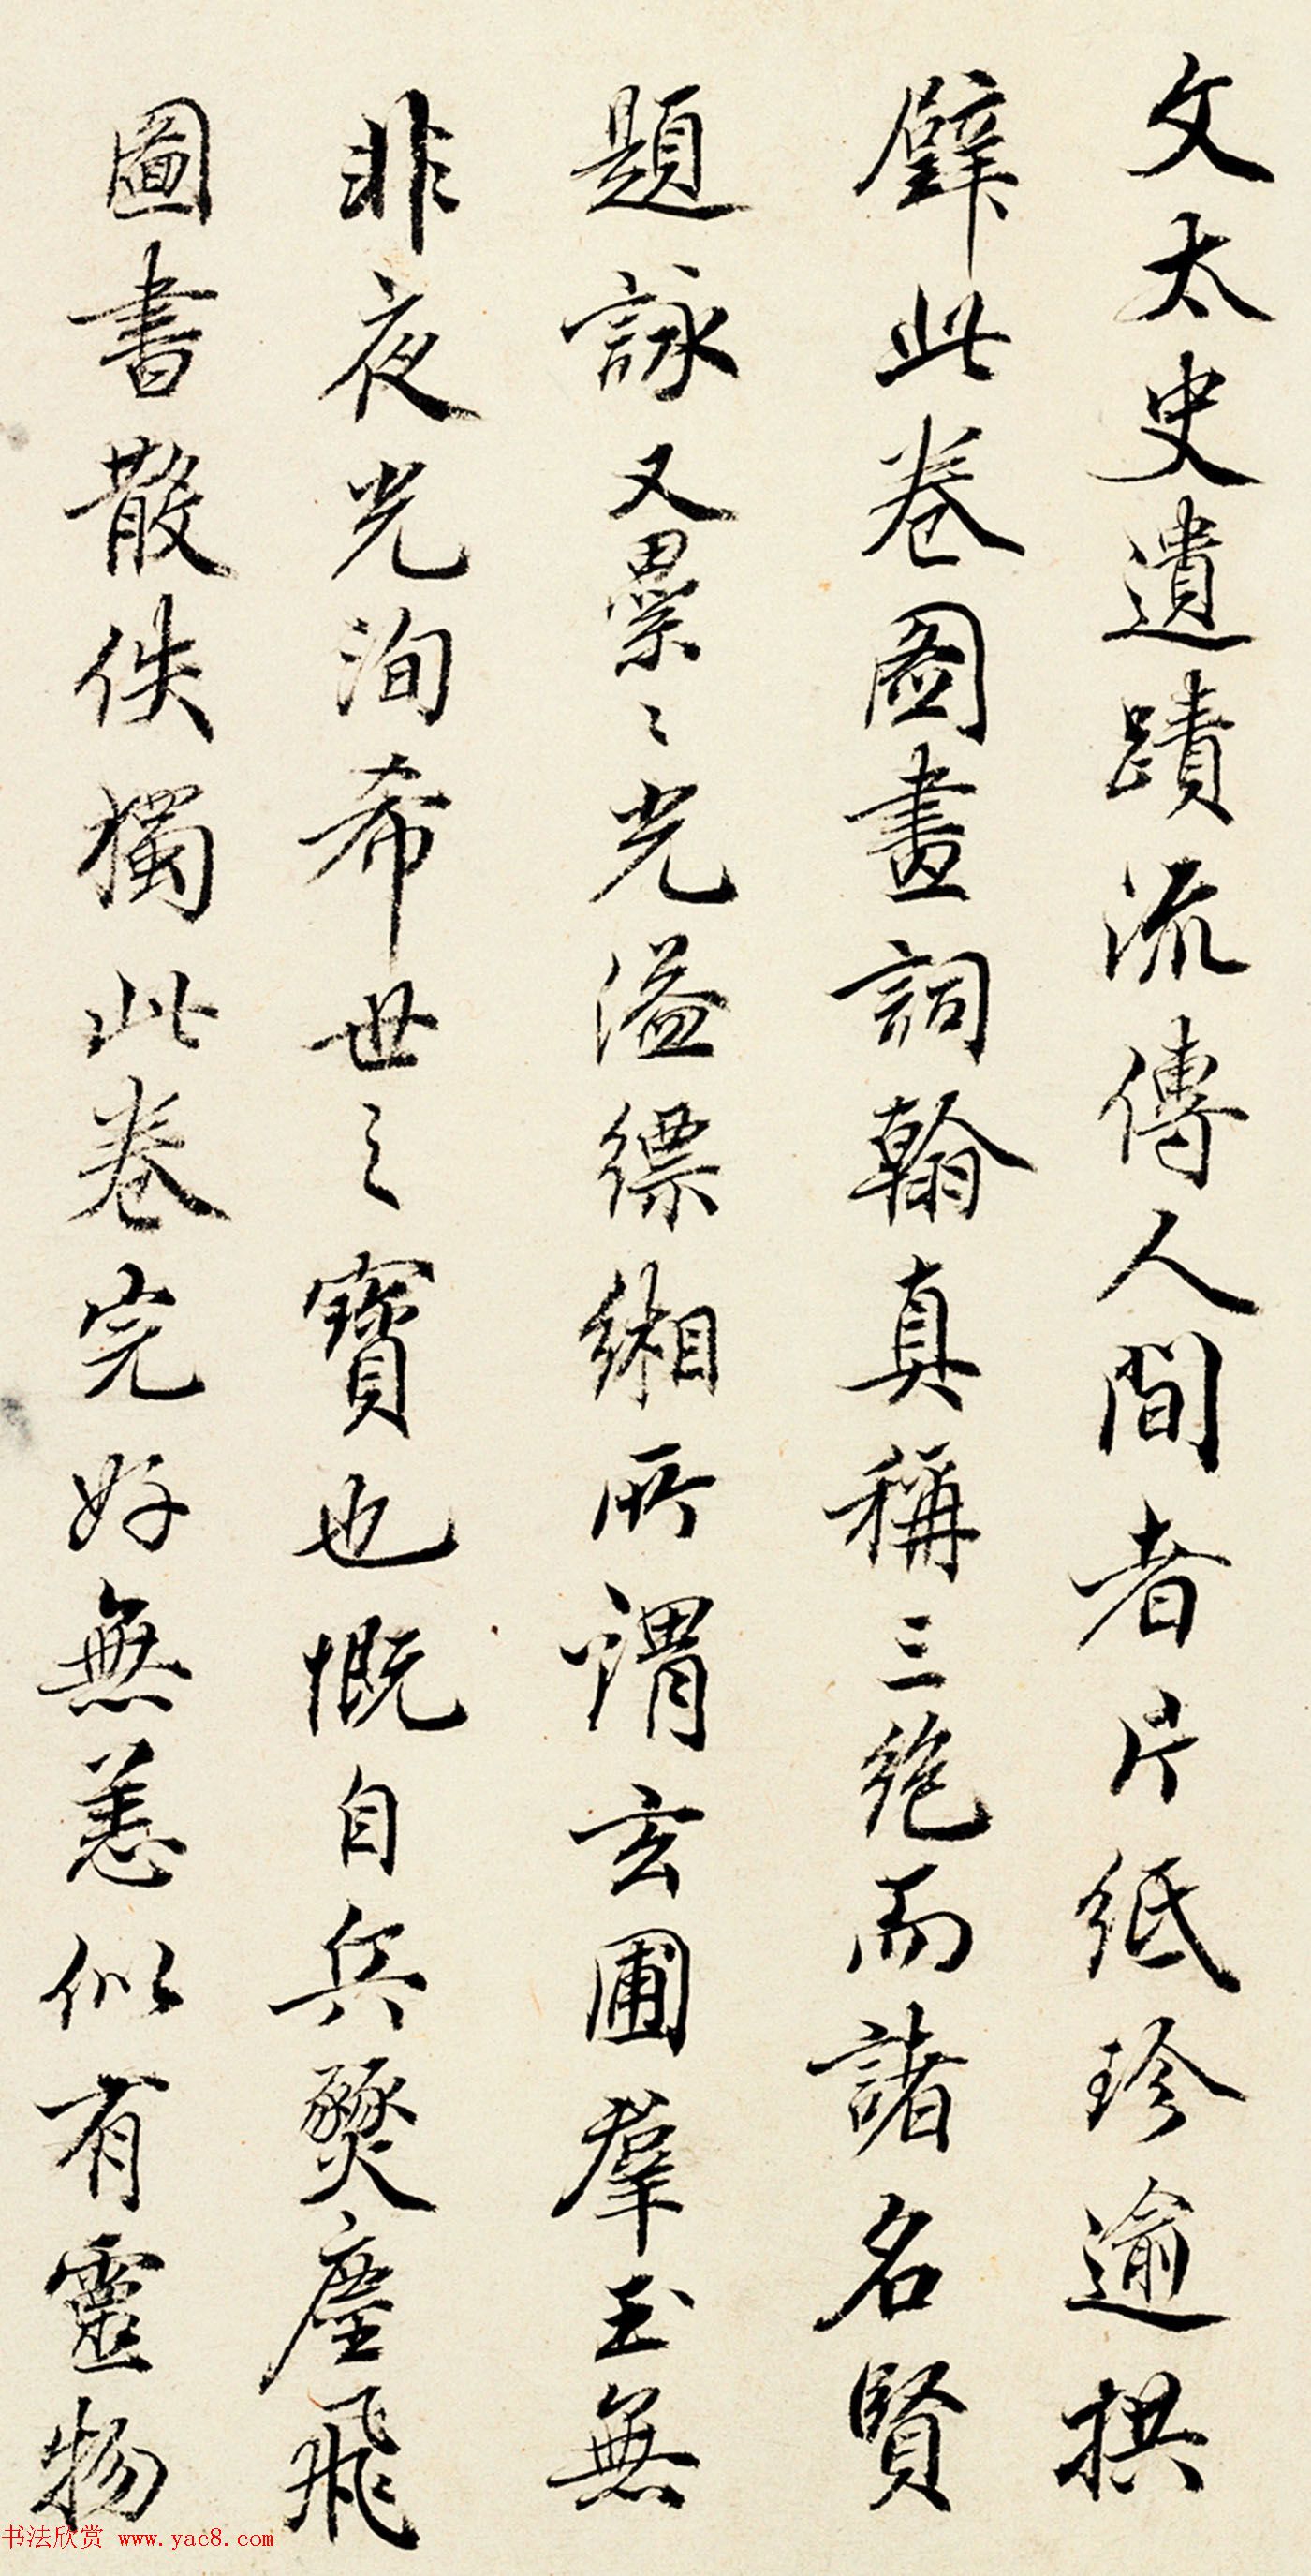 文太史遺蹟流傳人間者片紙珍逾拱
璧此卷圖畫詞翰真稱三絕而諸名賢
題詠又纍〻光溢縹緗所謂玄圃羣玉無
非夜光洵希世之寶也慨自兵燹塵飛
圖書散佚獨此卷完好無恙似有靈物
书法欣赏 www.yac8.com